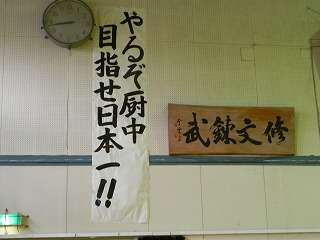 やるぞ厨中
目指せ日本一!!
修文錬武